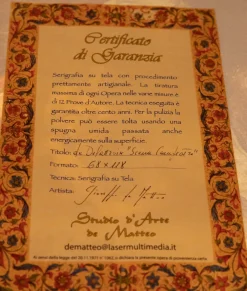 Certificato
di Garanzia
Serigrafia su tela con procedimento
prettamente artigianale. La tiratura
massima di ogni Opera nelle varie misure è
di 12 Prove d'Autore. La tecnica eseguita è
garantita oltre cento anni. Per la pulizia la
polvere può essere tolta usando una
spugna umida passata anche
energicamente sulla superficie.
Titolo: da
Formato: 68 x 118
Tecnica: Serigrafia su Tela.
Artista:
Studio d'Arte
de Matteo
dematteo@lasermultimedia.it
Ai sensi della legge del 20.11.1971 n° 1062, si dichiara la